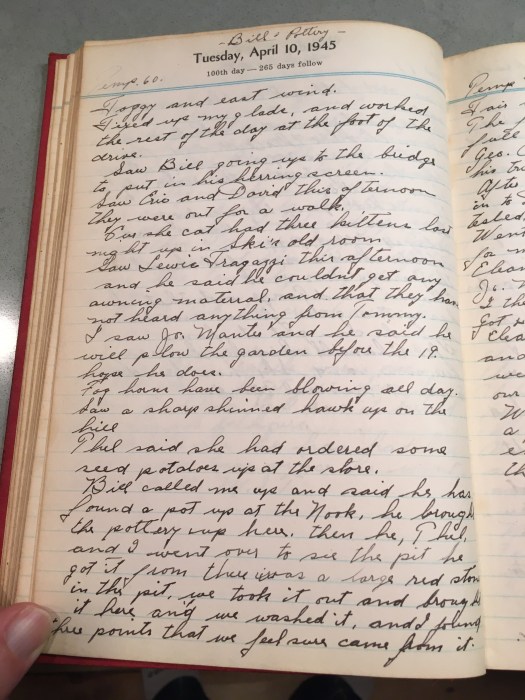 - Bill's Pottery -
Tuesday, April 10, 1945
100th day — 265 days follow
Temp. 60.
Foggy and east wind.
Fixed up my glade, and worked
the rest of the day at the foot of the
drive.
Saw Bill going up to the bridge
to put in his herring screen.
Saw Eric and David this afternoon
they were out for a walk.
she cat had three kittens last
night up in Ski's old room
Saw Lewie Fragazzi this afternoon
and he said he couldnt get any
awning material, and that they have
not heard anything from Tommy.
I saw Jo. Mantes and he said he
will plow the garden before the 19.
hope he does.
Fog horns have been blowing all day.
Saw a sharp shinned hawk up on the
hill
Phel said she had ordered some
seed potatoes up at the store.
Bill called me up and said he, has
found a pot up at the Nook, he brough
the pottery up here. then he, Phel,
and I went over to see the pit he
got it from there was a large red ston
in the pit, we took it out and brough
it here and we washed it, and I found
three points that we feel sure came from it.
Temp
Fair
The
Geo.
his
After
in to
Went
for
Clean
Jo.
I th
got
Clea
and
we
our
W
a
th